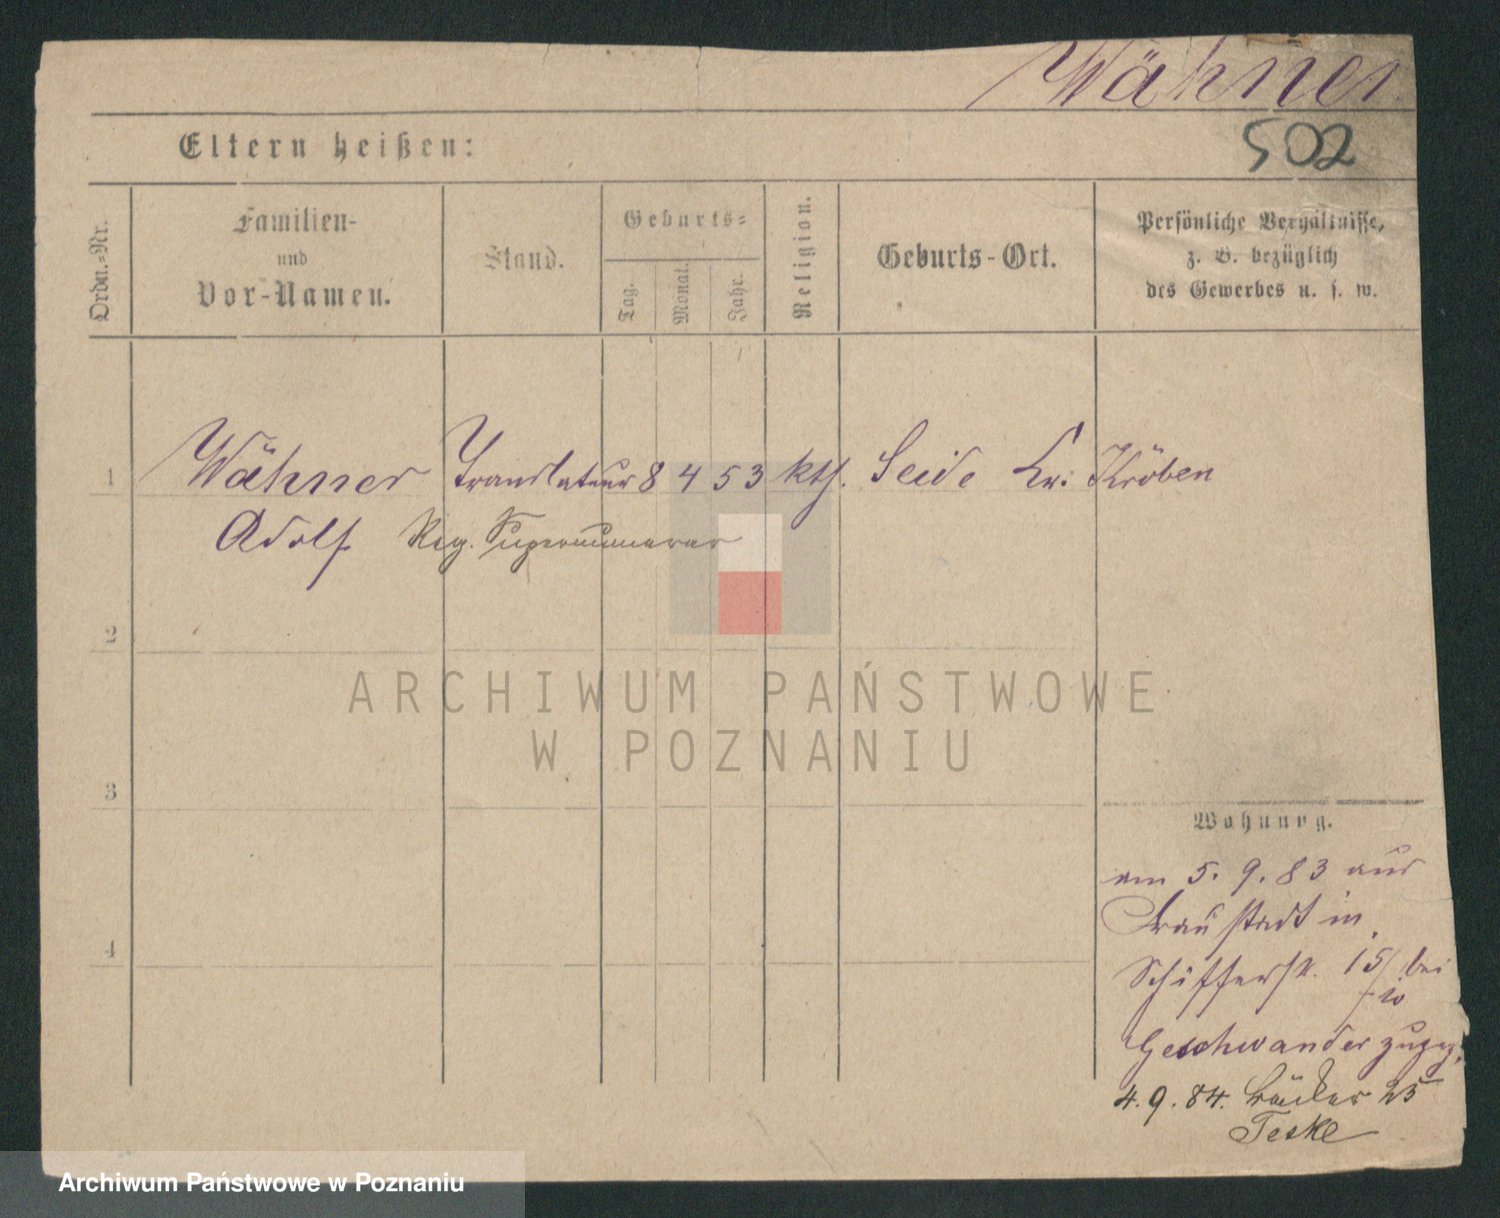 Wähner
502
Eltern heißen:
Ordn.-Nr.
Familien-
und
Vor-Namen.
Stand.
Geburts-
Tag.
Monat.
Jahr.
Religion.
Geburts-Ort.
Persönliche Verhältnisse,
z. B. bezüglich
des Gewerbes u. s. w.
1 Wähner Translateur 8 4 53 kth. Seide Kr: Kröben
Adolf Reg. Supernumerar
2
3
4
ARCHIWUM PAŃSTWOWE
W POZNANIU
Wohnung.
am 5. 9. 83 aus
Fraustadt in
Schifferstr. 15/ bei
Geschwander zugez.
4. 9. 84. Bäcker 25
Teske
Archiwum Państwowe w Poznaniu